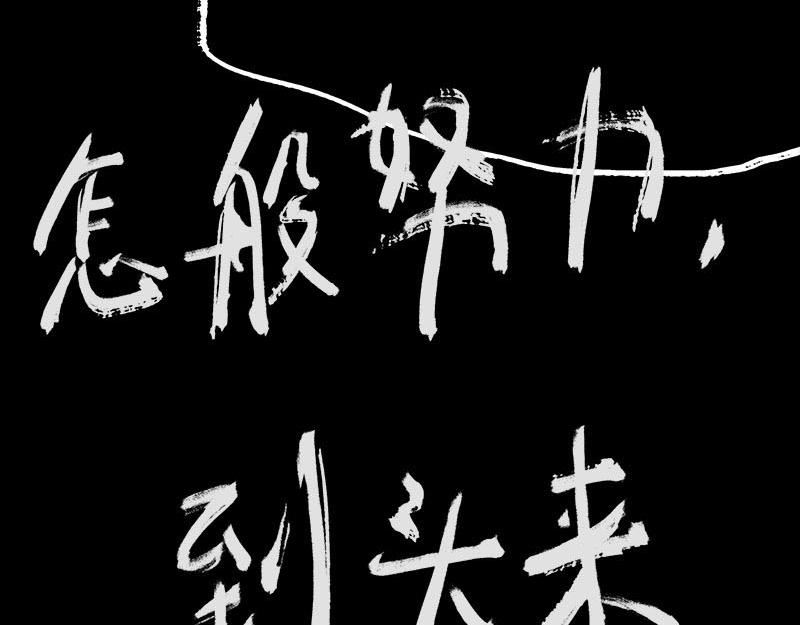 怎般努力,
到头来